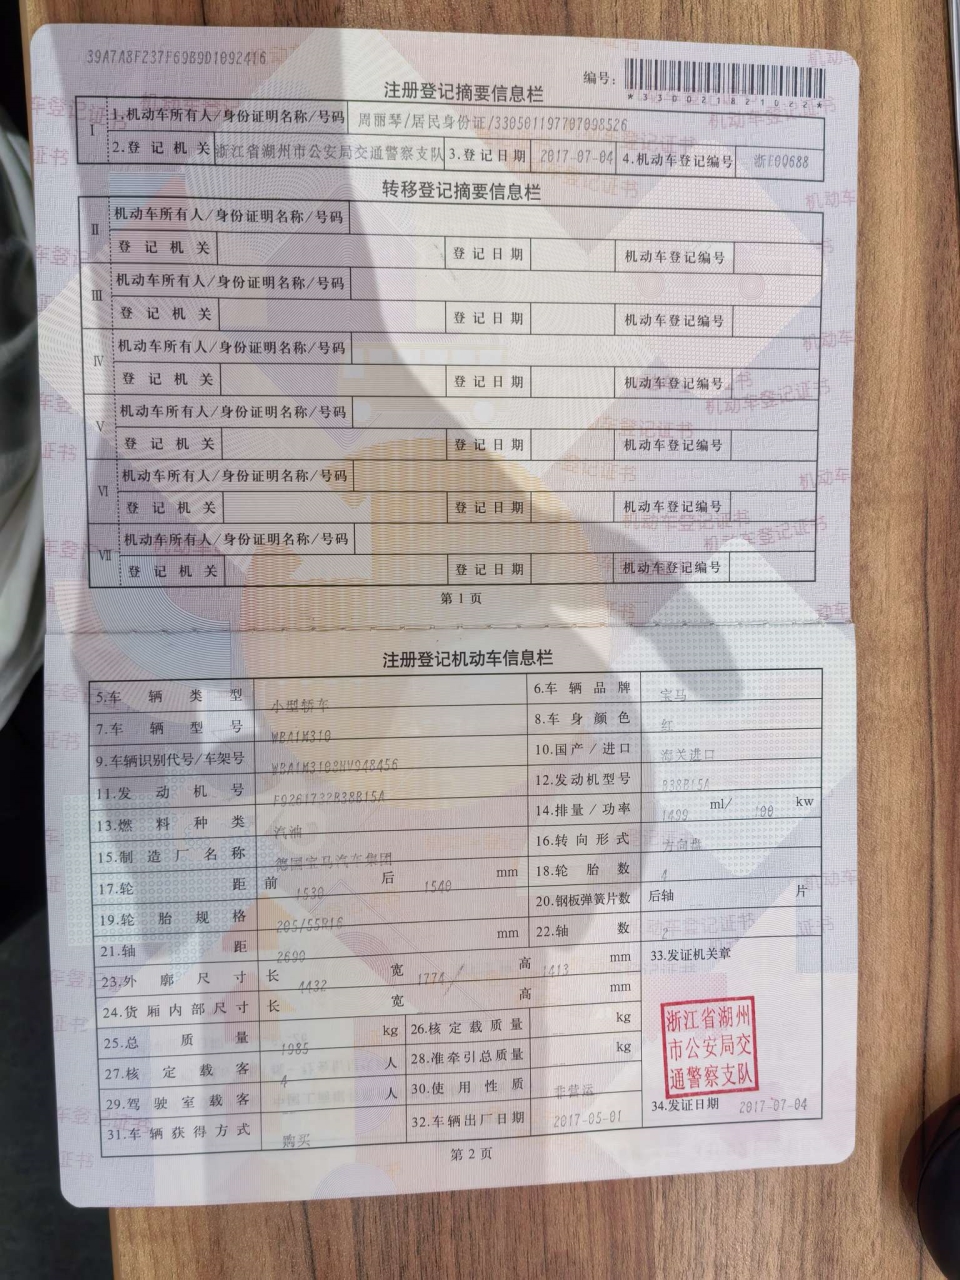 39A7A8F237F69B9D1092416
编号:
*330021821022*
注册登记摘要信息栏
Ⅰ 1.机动车所有人/身份证明名称/号码 周丽琴/居民身份证/330501197707098526
2.登记机关 浙江省湖州市公安局交通警察支队 3.登记日期 2017-07-04 4.机动车登记编号 浙E0Q688
转移登记摘要信息栏
Ⅱ 机动车所有人/身份证明名称/号码
登记机关 登记日期 机动车登记编号
Ⅲ 机动车所有人/身份证明名称/号码
登记机关 登记日期 机动车登记编号
Ⅳ 机动车所有人/身份证明名称/号码
登记机关 登记日期 机动车登记编号
Ⅴ 机动车所有人/身份证明名称/号码
登记机关 登记日期 机动车登记编号
Ⅵ 机动车所有人/身份证明名称/号码
登记机关 登记日期 机动车登记编号
Ⅶ 机动车所有人/身份证明名称/号码
登记机关 登记日期 机动车登记编号
第1页
注册登记机动车信息栏
5.车辆类型 小型轿车 6.车辆品牌 宝马
7.车辆型号 WBA1M310 8.车身颜色 红
9.车辆识别代号/车架号 WBA1M3103HV948456 10.国产/进口 海关进口
11.发动机号 12.发动机型号 B38B15A
13.燃料种类 汽油 14.排量/功率 1499 ml/ 100 kw
15.制造厂名称 德国宝马汽车集团 16.转向形式 方向盘
17.轮距 前 1530 后 1540 mm 18.轮胎数 4
19.轮胎规格 205/55R16 20.钢板弹簧片数 后轴 片
21.轴距 2690 mm 22.轴数 2
23.外廓尺寸 长 4432 宽 1774 高 1413 mm 33.发证机关章
24.货厢内部尺寸 长 宽 高 mm
25.总质量 1985 kg 26.核定载质量 kg
27.核定载客 4 人 28.准牵引总质量 kg
29.驾驶室载客 人 30.使用性质 非营运
31.车辆获得方式 购买 32.车辆出厂日期 2017-05-01
浙江省湖州
市公安局交
通警察支队
34.发证日期 2017-07-04
第2页